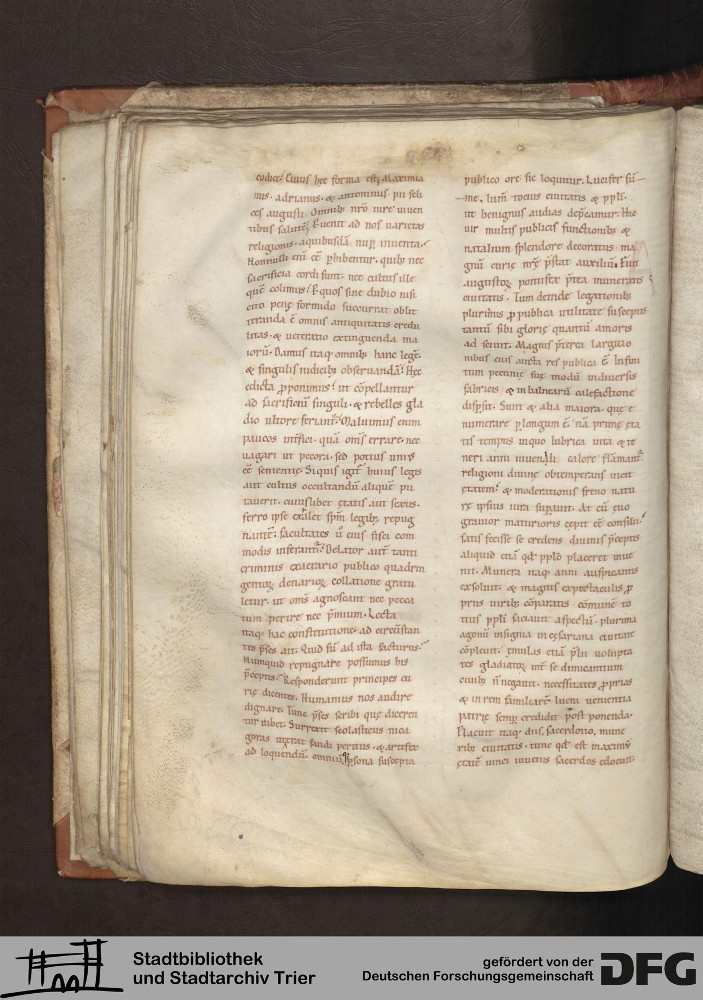 codice. Cuius hęc forma est. Maximia
nus. adrianus. & antoninus. pii feli
ces augusti. Omnib; nr̄o iure uiuen
tibus salutē. Peruenit ad nos uarietas
religionis. a quibusdā nup̄ inuenta.
Nonnulli eni ēē p̄hibentur. quib; nec
sacrificia cordi sunt. nec cultus ille
quē colimus. &
cito penę formido succurrat oblit
teranda ē omnis antiquitatis credu
litas. & ueteratio extinguenda ma
iorū. Damus itaq; omnib; hanc legē.
& singulis iudicib; obseruandā. Hęc
edicta p̄ponimus. ut cōpellantur
ad sacrificiū singuli. & rebelles gla
dio ultore feriant᷑. Maluimus enim
paucos int̄fici. quā om̄s errare. nec
uagari ut pecora. sed potius unius
ēē sententię. Siquis igit᷑ huius legis
aut cultus occultandū aliquē pu
tauerit. cuiuslibet ętatis aut sexus.
ferro ipse exalet sp̄m legib; repug
nantē. facultates ū eius fisci com
modis inferant᷑. Delator aut̄ tanti
criminis exaerario publico quadrin
gentorꝝ denariorꝝ collatione gratu
letur. ut om̄s agnoscant nec pecca
tum perire nec p̄mium. Lecta
itaq; hac constitutione. ad circūstan
tes p̄ses ait. Quid sū ad ista facturus.
Numquid repugnare possumus his
p̄ceptis. Responderunt principes cu
rię dicentes. Humanius nos audire
dignare. Tunc p̄ses scribi quę dicerent
tur iubet. Surrexit scolasticus nica
goras uiterat fandi peritus. & artifex
ad loquendū. omniū p̄sona suscepta
publico ore sic loquitur. Lucifer sū
me. lum̄ tocius ciuitatis & pp̄li.
ut benignus audias dep̄camur. Hic
uir multis publicis functionib; &
natalium splendore decoratus ma
gnū curię nr̄ę p̄stat auxiliū. Fuit
augustorꝝ pontifex p̄uta munerans
ciuitatis. Tum deinde legationib;
plurimis ꝓ publica utilitate susceptis
tantū sibi glorię quantū amoris
ad sciuit. Magnis p̄terea largitio
nibus eius aucta res publica ē. Infini
tum pecunię suę modū indiuersis
fabricis & in balnearū calefactione
disp̄sit. Sunt & alia maiora. que e
numerare p̱longum ē. nā primę ęta
tis tempus inquo lubrica uita & te
neri anni iuuenili calore flāmant᷑.
religioni diuinę obtemperans uicit
ętatem. & moderationis freno natu
rę ipsius iura sup̱auit. At cū ęuo
grauior maturioris cępit ēē consilii.
satis fecisse se credens diuinis p̄ceptis
aliquid etiā qd̄ pp̄lo placeret inue
nit. Munera naq; anni auspicantis
exsoluit. & magnis expectaculis ꝓ
priis uirib; cōparatis cōmune to
tius pp̄li saciauit aspectū. plurima
agonū insignia in cęsariana ciuitate
cōpleuit. ęmulas etiā p̄lii uolupta
tes gladiatorꝝ int̄ se dimicantium
ciuib; n̄ negauit. necessitates ꝓprias
& in rem familiarē lucra uenientia
patrię semp̱ credidit post ponenda.
Placuit itaq; diis. sacerdotio. mune
rib; ciuitatis. tunc qd̄ est maximū
ętatē uinci iuuenis sacerdos edocuit.
Stadtbibliothek
und Stadtarchiv Trier
gefördert von der
Deutschen Forschungsgemeinschaft
DFG